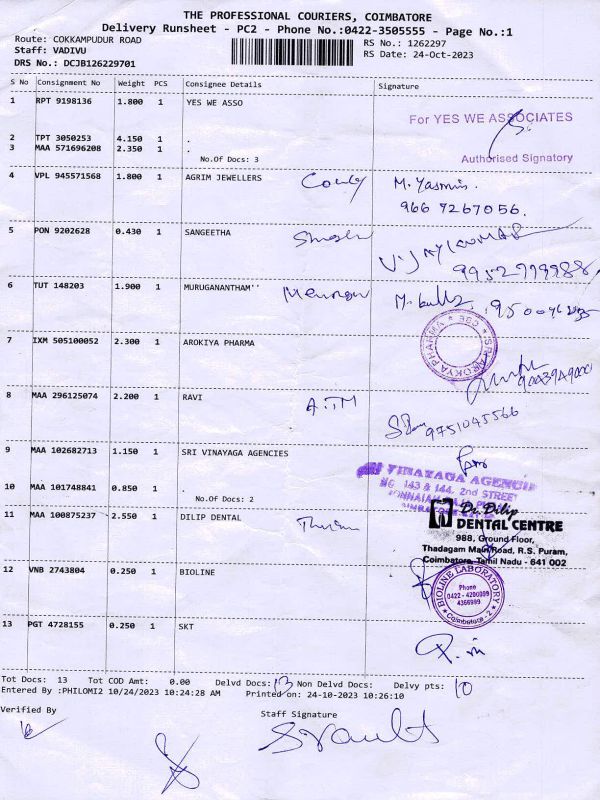 THE PROFESSIONAL COURIERS, COIMBATORE
Delivery Runsheet - PC2 - Phone No.:0422-3505555 - Page No.:1
Route: COKKAMPUDUR ROAD RS No.: 1262297
Staff: VADIVU RS Date: 24-Oct-2023
DRS No.: DCJB126229701
S No Consignment No Weight PCS Consignee Details Signature
1 RPT 9198136 1.800 1 YES WE ASSO
For YES WE ASSOCIATES
2 TPT 3050253 4.150 1 .
3 MAA 571696208 2.350 1 .
No.Of Docs: 3 Authorised Signatory
4 VPL 945571568 1.800 1 AGRIM JEWELLERS M. Yasmin.
966 7267056.
5 PON 9202628 0.430 1 SANGEETHA VIJAYKUMAR
9952999988
6 TUT 148203 1.900 1 MURUGANANTHAM''
7 IXM 505100052 2.300 1 AROKIYA PHARMA
8 MAA 296125074 2.200 1 RAVI ATM 9751045566
9 MAA 102682713 1.150 1 SRI VINAYAGA AGENCIES
VINAYAGA AGENCIE
NO. 143 & 144, 2nd STREET
10 MAA 101748841 0.850 1 .
No.Of Docs: 2
11 MAA 100875237 2.550 1 DILIP DENTAL
Dr. Dilip
DENTAL CENTRE
988, Ground Floor,
Thadagam Main Road, R.S. Puram,
Coimbatore, Tamil Nadu - 641 002
12 VNB 2743804 0.250 1 BIOLINE
BIOLINE LABORATORY
Phone
0422 - 4200999
4366999
Coimbatore - 2
13 PGT 4728155 0.250 1 SKT
Tot Docs: 13 Tot COD Amt: 0.00 Delvd Docs: 13 Non Delvd Docs: Delvy pts: 10
Entered By :PHILOMI2 10/24/2023 10:24:28 AM Printed on: 24-10-2023 10:26:10
Verified By Staff Signature